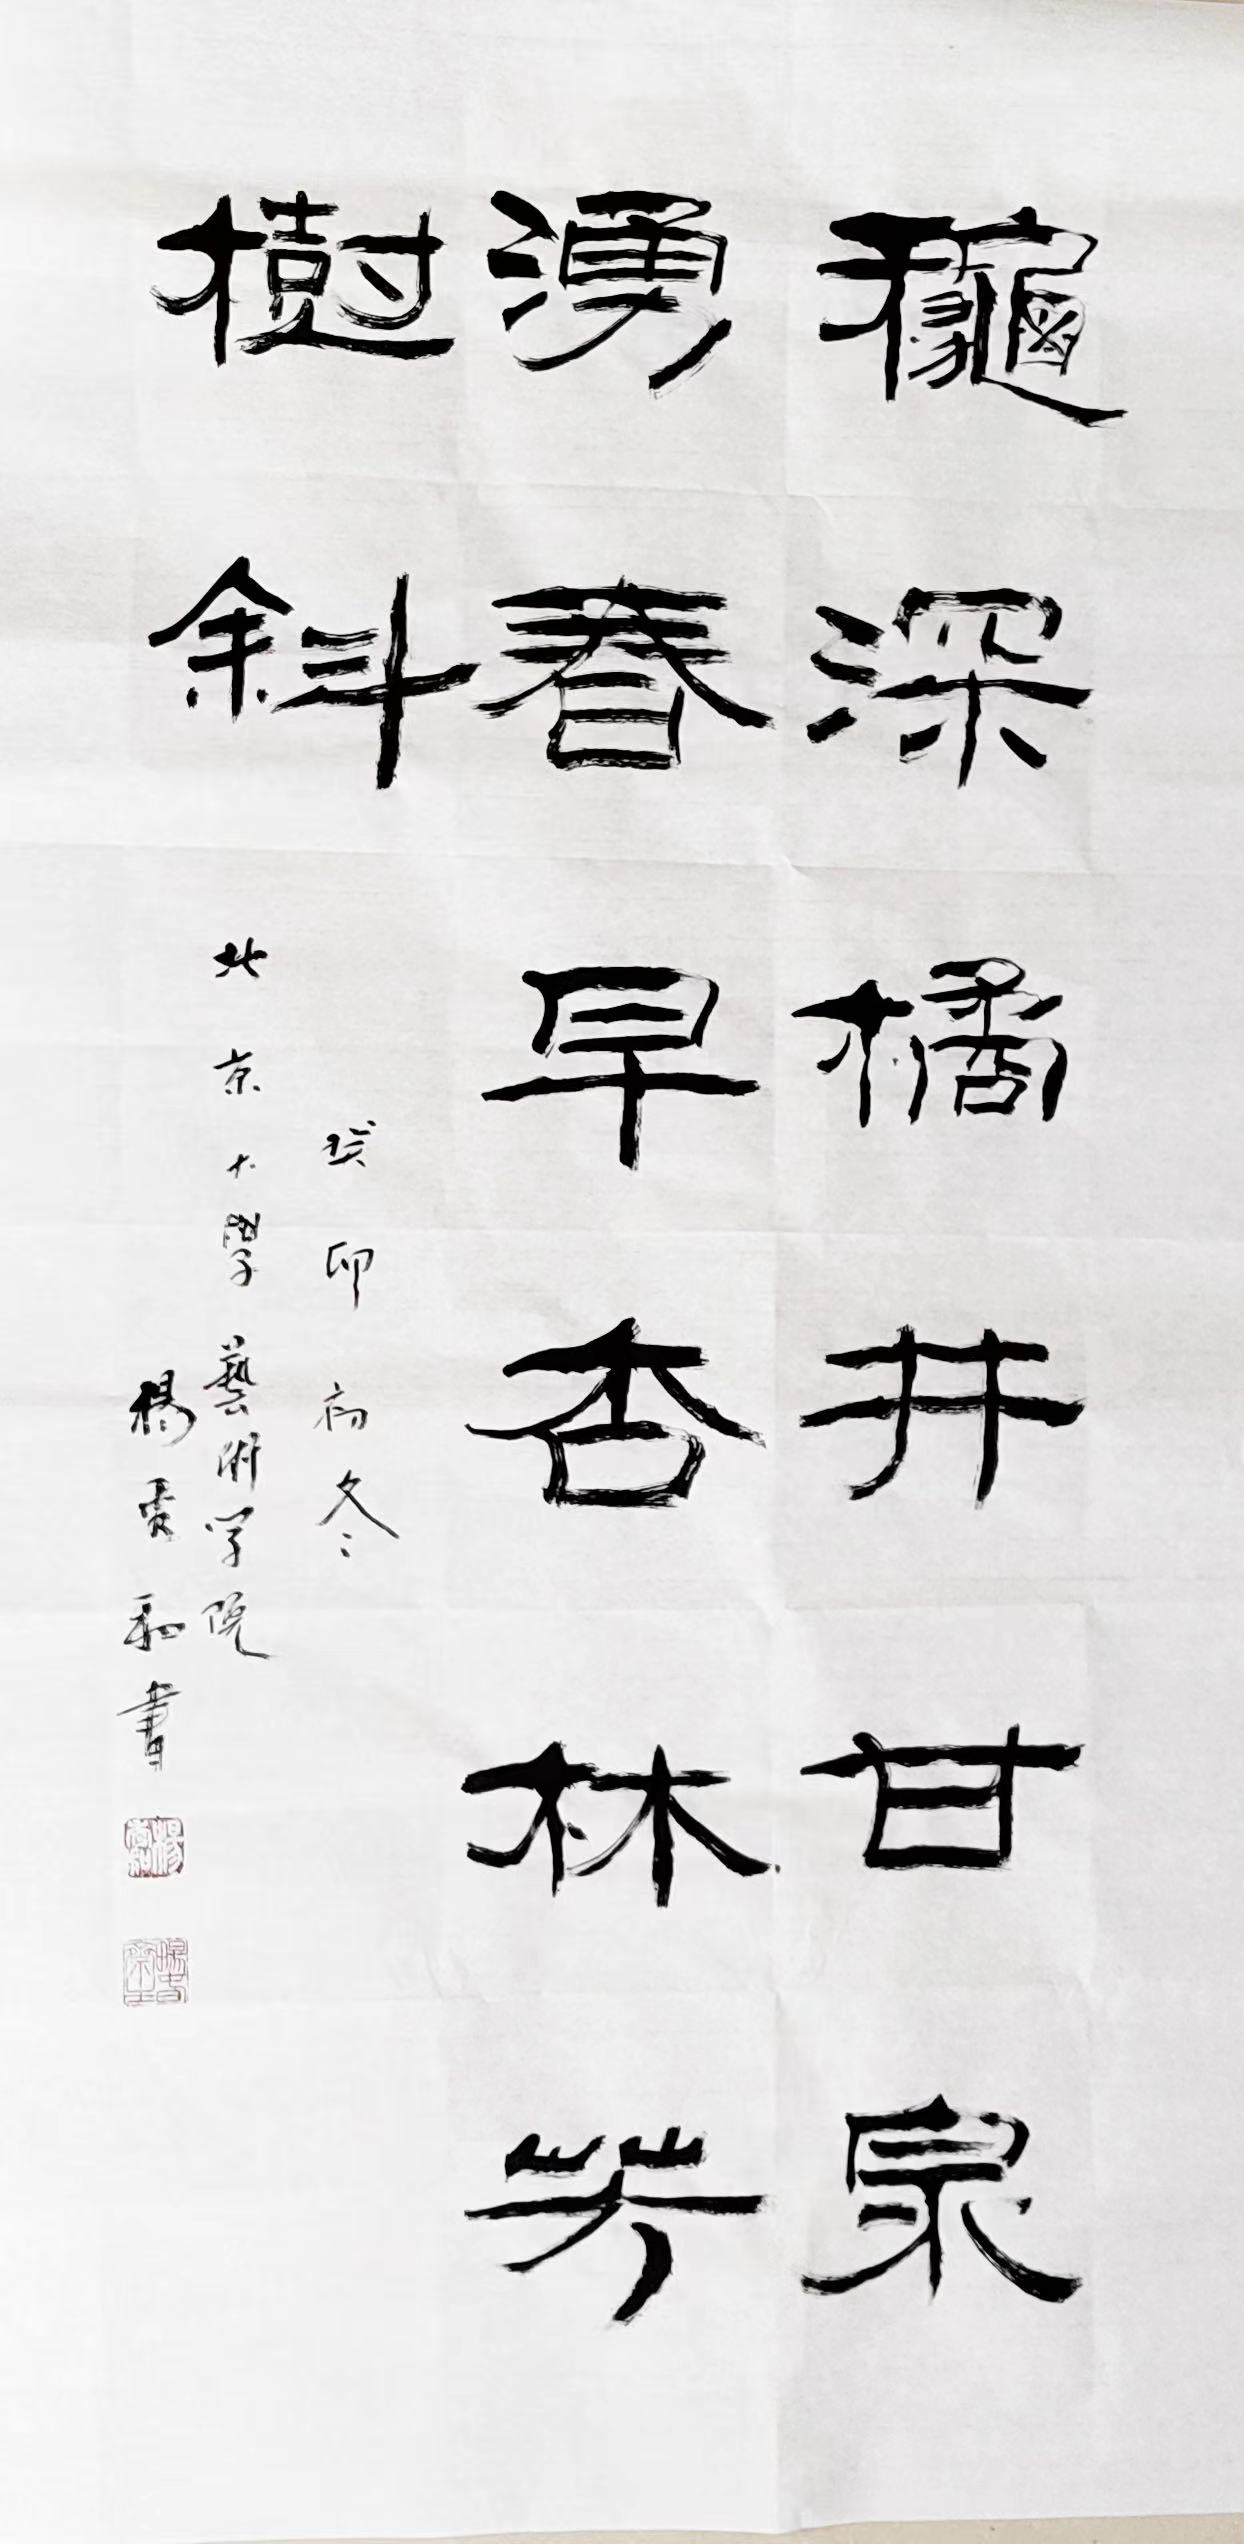 龝深橘井甘泉
湧春早杏林芳
樹斜
癸卯初冬
北京大學藝術学院
楊 和書